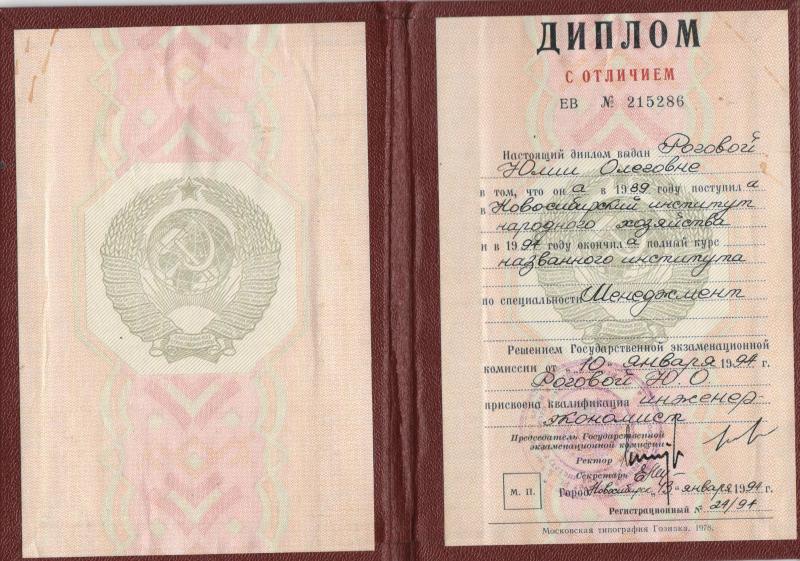 ДИПЛОМ
С ОТЛИЧИЕМ
ЕВ № 215286
Настоящий диплом выдан Роговой
Юлии Олеговне
в том, что он а в 1989 году поступил а
в Новосибирский институт
народного хозяйства
и в 1994 году окончил а полный курс
названного института
по специальности Менеджмент
Решением Государственной экзаменационной
комиссии от „10“ января 1994 г.
Роговой Ю.О
присвоена квалификация инженер-
экономист
Председатель Государственной
экзаменационной комиссии
Ректор
Секретарь
М. П.
Город Новосибирск „13“ января 1994 г.
Регистрационный № 24/94
Московская типография Гознака. 1978.